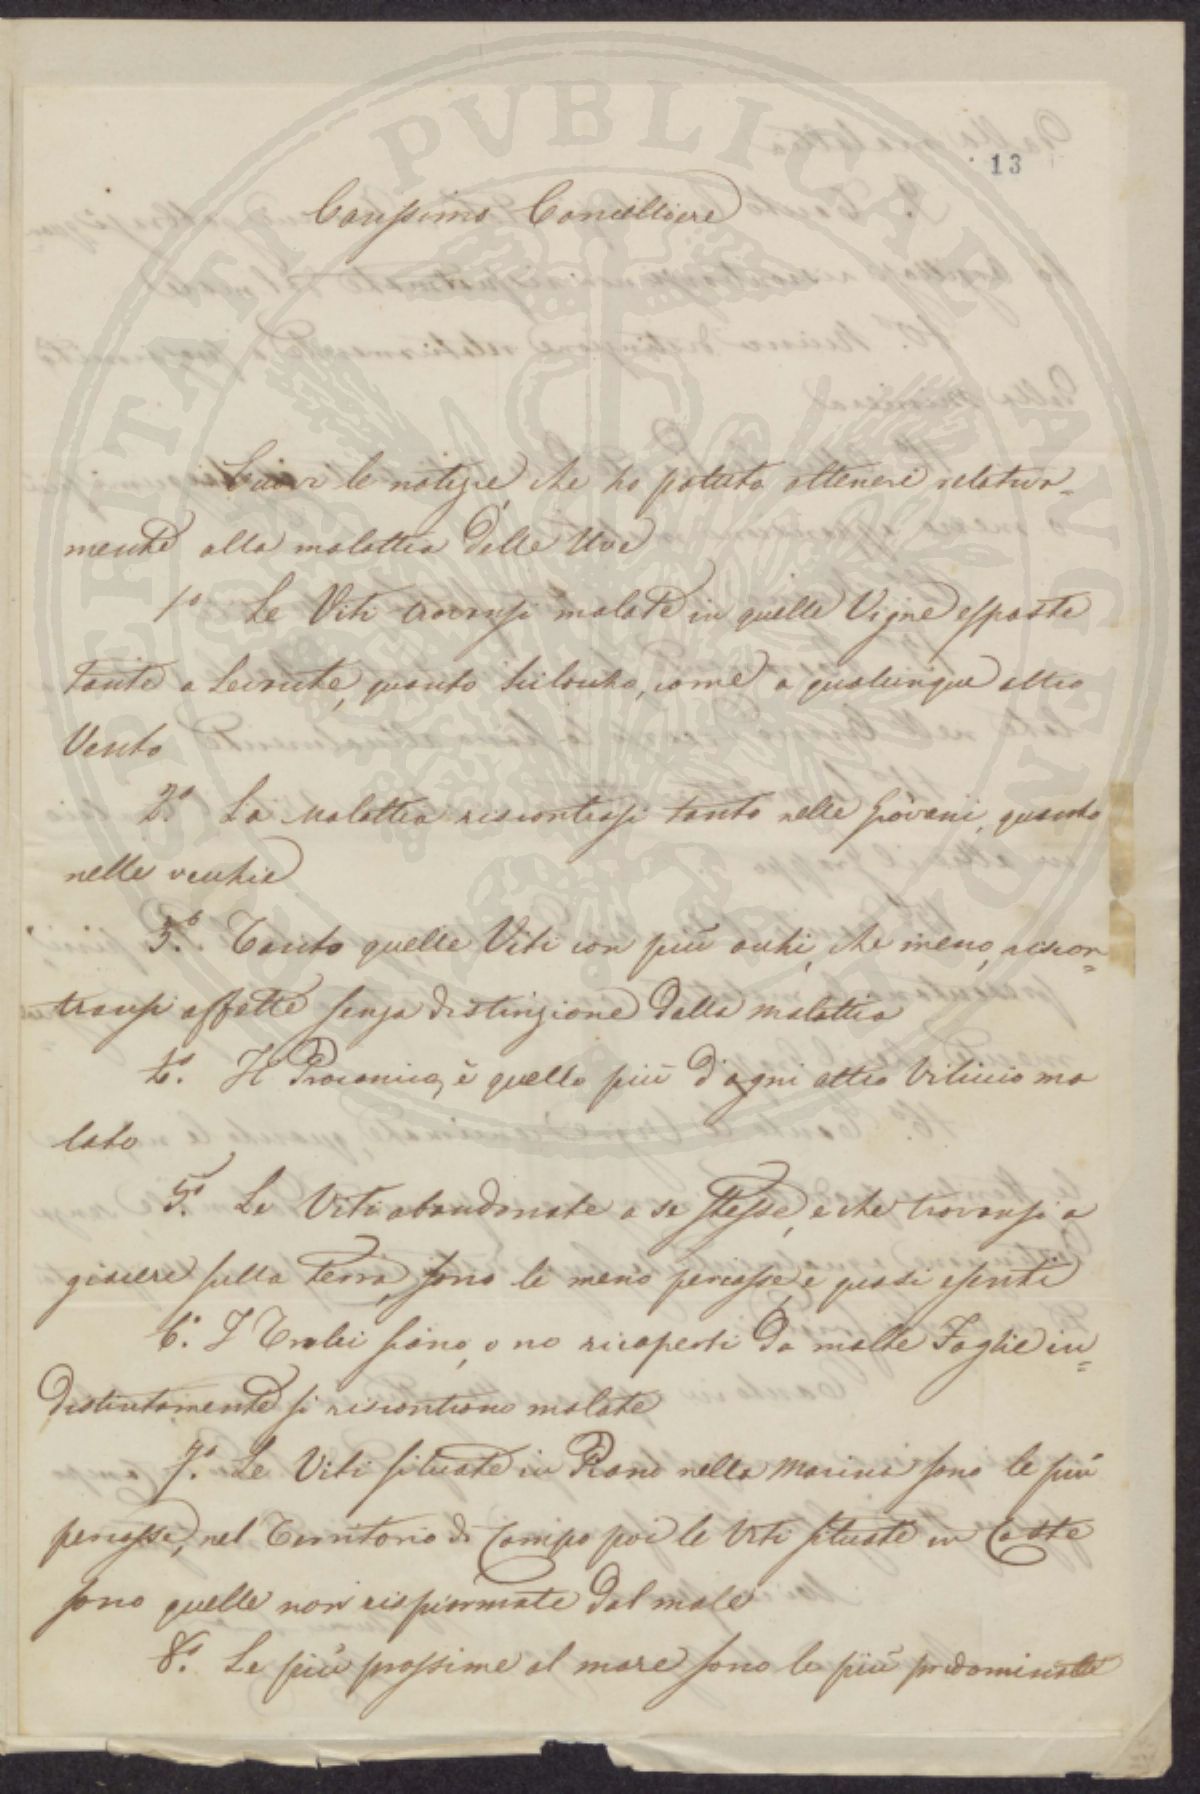 PROSPERITATI PVBLICAE AVGENDAE
13
Carissimo Cancelliere
Eccovi le notizie, che ho potuto ottenere relativa=
mente alla malattia delle Uve
1º Le Viti trovansi malate in quelle Vigne esposte
tante a Levante, quanto Silocco, come a qualunque altro
Vento
2º. La Malattia riscontrasi tanto nelle Giovani, quanto
nelle vecchie
3º. Tanto quelle Viti con più occhi, che meno, riscon=
transi affette senza distinzione dalla malattia
4º. Il Procanico, è quello più d'ogni altro Viticcio ma
lato
5º. Le Viti abandonate a se stesse, e che trovansi a
giacere sulla terra, sono le meno percosse, e quasi esenti
6º. I Tralci siano, o no ricoperti da molte Foglie in=
distintamente si riscontrano malate
7º. Le Viti situate in Piano nella Marina sono le più
percosse, nel Territorio di Campo poi le Viti situate in Coste
sono quelle non risparmiate dal male
8º. Le più prossime al mare sono le più predominate